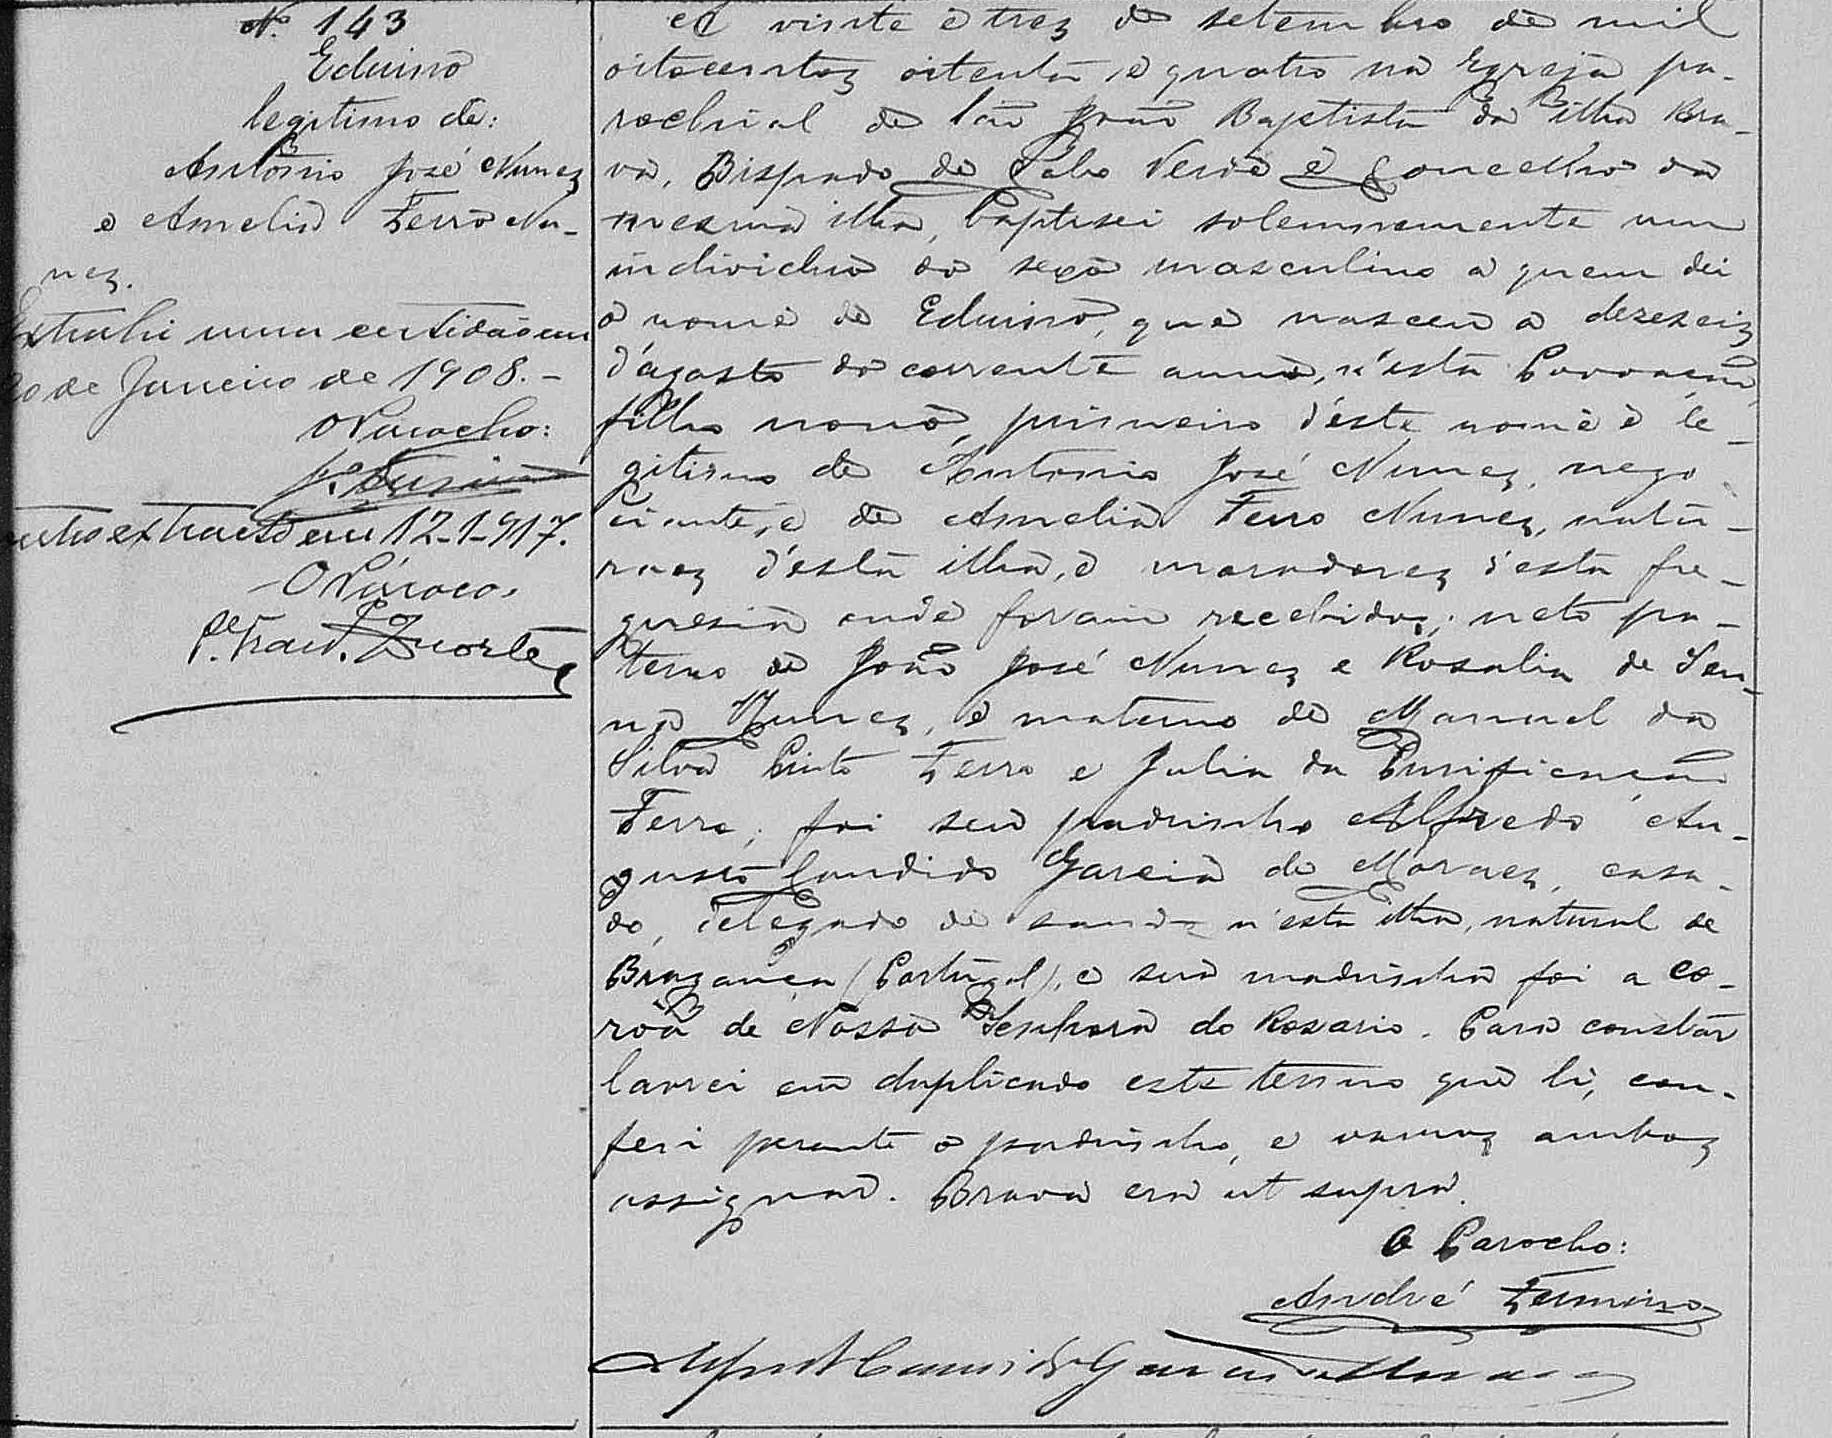 Nº 143
Eduino
legitimo de:
Antonio José Nunes
e Amelia Ferro Nu-
nes.
Extrahi uma certidão em
de Janeiro de 1908.-
O Parocho:
outro extracto em 12-1-917.
O Pároco,
P.e Franc. Duarte
A vinte e trez de setembro de mil
oitocentos oitenta e quatro na Egreja pa-
rochial de São João Baptista da ilha Bra-
va, Bispado de Cabo Verde e Concelho da
mesma ilha, baptisei solemnemente um
individuo do sexo masculino a quem dei
o nome de Eduino, que nasceu a dezeseis
d'agosto do corrente anno, n'esta Povoação,
filho nono, primeiro d'este nome e le-
gitimo de Antonio José Nunes, nego
ciante, e de Amelia Ferro Nunes, natu-
raes d'esta ilha, e moradores n'esta fre-
guesia onde foram recebidos; neto pa-
terno de João José Nunes e Rosalia de Sen-
na Nunes, e materno de Manuel da
Silva Pinto Ferro e Julia da Purificação
Ferro; foi seu padrinho Alfredo Au-
gusto Candido Garcia de Moraes, casa-
do, delegado de saude n'esta ilha, natural de
Bragança (Portugal), e sua madrinha foi a co-
roa de Nossa Senhora do Rosario. Para constar
lavrei em duplicado este termo que li, con-
feri perante o padrinho, e vamos ambos
assignar. Brava era ut supra.
O Parocho:
André Firmino
Candido Garcia de Moraes